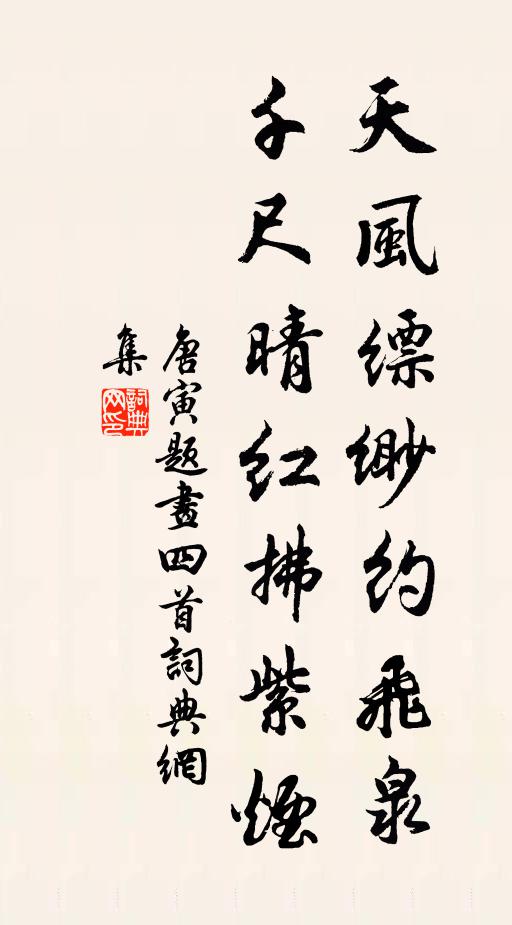 天風縹緲約飛泉
千尺晴紅拂紫煙
唐寅題畫四首詞典網
集
詞典
网印